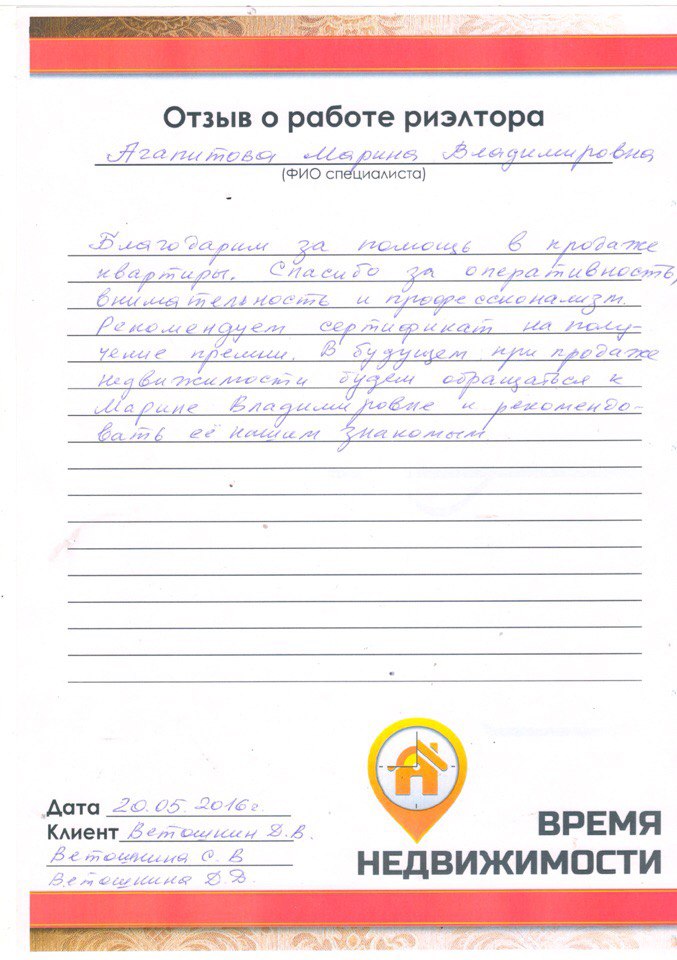 Отзыв о работе риэлтора
Агапитова Марина Владимировна
(ФИО специалиста)
Благодарим за помощь в продаже
квартиры. Спасибо за оперативность,
внимательность и профессионализм.
Рекомендуем сертификат на полу-
чение премии. В будущем при продаже
недвижимости будем обращаться к
Марине Владимировне и рекомендо-
вать её нашим знакомым
Дата 20.05.2016г.
Клиент Ветошкин Д.В.
Ветошкина С. В
Ветошкина Д.Д.
ВРЕМЯ
НЕДВИЖИМОСТИ